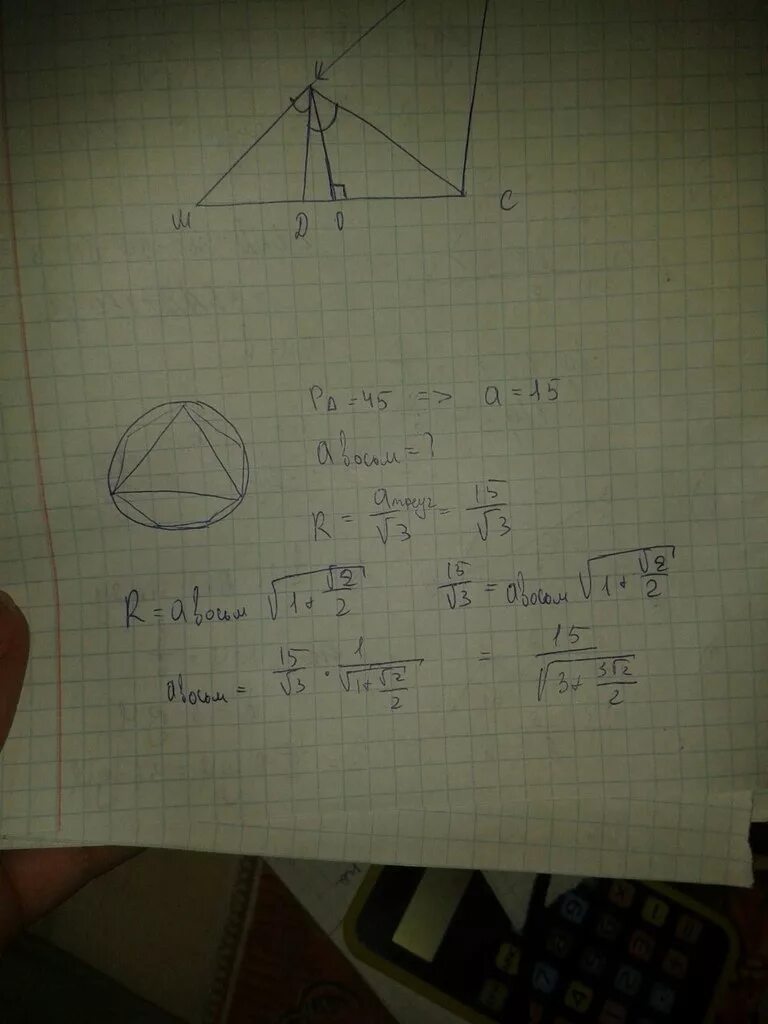 K
M Д O C
P△ = 45 => a = 15
aвосьм = ?
R = aтреуг/√3 = 15/√3
R = aвосьм √(1+√2/2) 15/√3 = aвосьм √(1+√2/2)
aвосьм = 15/√3 · 1/√(1+√2/2) = 15/√(3+3√2/2)